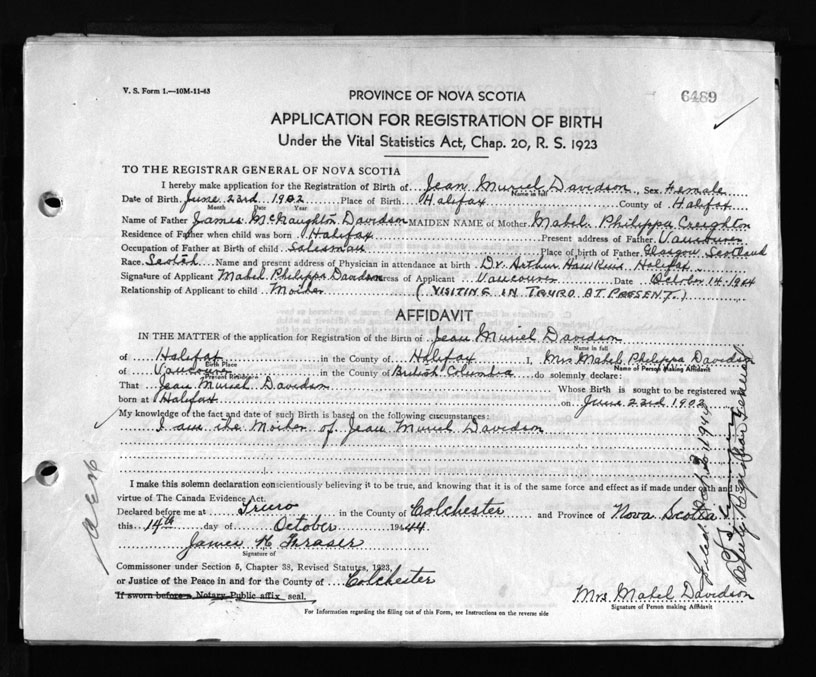 V. S. Form 1.—10M-11-43
6489
PROVINCE OF NOVA SCOTIA
APPLICATION FOR REGISTRATION OF BIRTH
Under the Vital Statistics Act, Chap. 20, R. S. 1923
TO THE REGISTRAR GENERAL OF NOVA SCOTIA
I hereby make application for the Registration of Birth of Jean Muriel Davidson, Sex Female
Name in full
Date of Birth June 23rd 1902 Place of Birth Halifax County of Halifax
Month Date Year
Name of Father James McNaughton Davidson MAIDEN NAME of Mother Mabel Philippa Creighton
Residence of Father when child was born Halifax Present address of Father Vancouver
Occupation of Father at Birth of child Salesman Place of birth of Father Glasgow Scotland
Race Scotch Name and present address of Physician in attendance at birth Dr. Arthur Hawkins Halifax
Signature of Applicant Mabel Philippa Davidson Address of Applicant Vancouver Date October 14-1944
Relationship of Applicant to child Mother (VISITING IN TRURO AT PRESENT.)
AFFIDAVIT
IN THE MATTER of the application for Registration of the Birth of Jean Muriel Davidson
Name in full
of Halifax in the County of Halifax I, Mrs Mabel Philippa Davidson
Birth Place Name of Person Making Affidavit
of Vancouver in the County of British Columbia do solemnly declare:
Present Residence
That Jean Muriel Davidson Whose Birth is sought to be registered was
born at Halifax on June 23rd 1902
My knowledge of the fact and date of such Birth is based on the following circumstances:
I am the Mother of Jean Muriel Davidson
I make this solemn declaration conscientiously believing it to be true, and knowing that it is of the same force and effect as if made under oath and by
virtue of The Canada Evidence Act.
Declared before me at Truro in the County of Colchester and Province of Nova Scotia
this 14th day of October 1944
James H Fraser
Signature of
Commissioner under Section 5, Chapter 38, Revised Statutes, 1923,
or Justice of the Peace in and for the County of Colchester
If sworn before a Notary Public affix seal.
Mrs Mabel Davidson
Signature of Person making Affidavit
For Information regarding the filling out of this Form, see Instructions on the reverse side
Deputy Registrar General